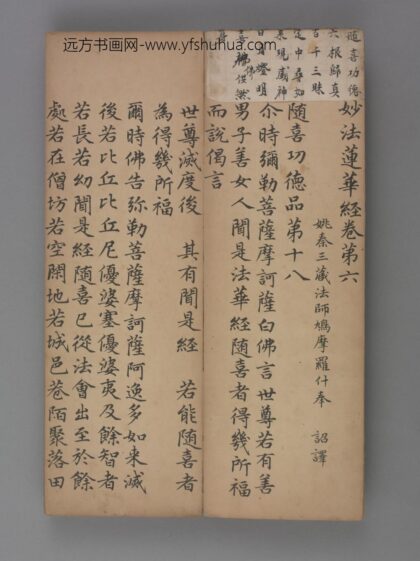 远方书画网-www.yfshuhua.com
随喜功德
六根歸真
百千三昧
定中尋如
來現威神
日月燈明
妙法蓮華經卷第六
姚秦三藏法師鳩摩羅什奉 詔譯
随喜功德品第十八
尒時彌勒菩薩摩訶薩白佛言世尊若有善
男子善女人聞是法華經随喜者得幾所福
而說偈言
世尊滅度後 其有聞是經 若能随喜者
為得幾所福
爾時佛告弥勒菩薩摩訶薩阿逸多如来滅
後若比丘比丘尼優婆塞優婆夷及餘智者
若長若幼聞是經随喜已從法會出至於餘
處若在僧坊若空閑地若城邑巷陌聚落田